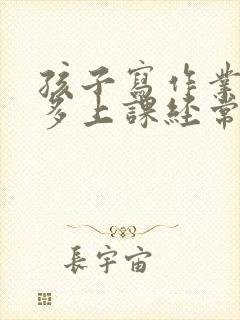 孩子寫作業
多上課經常
長宇宙